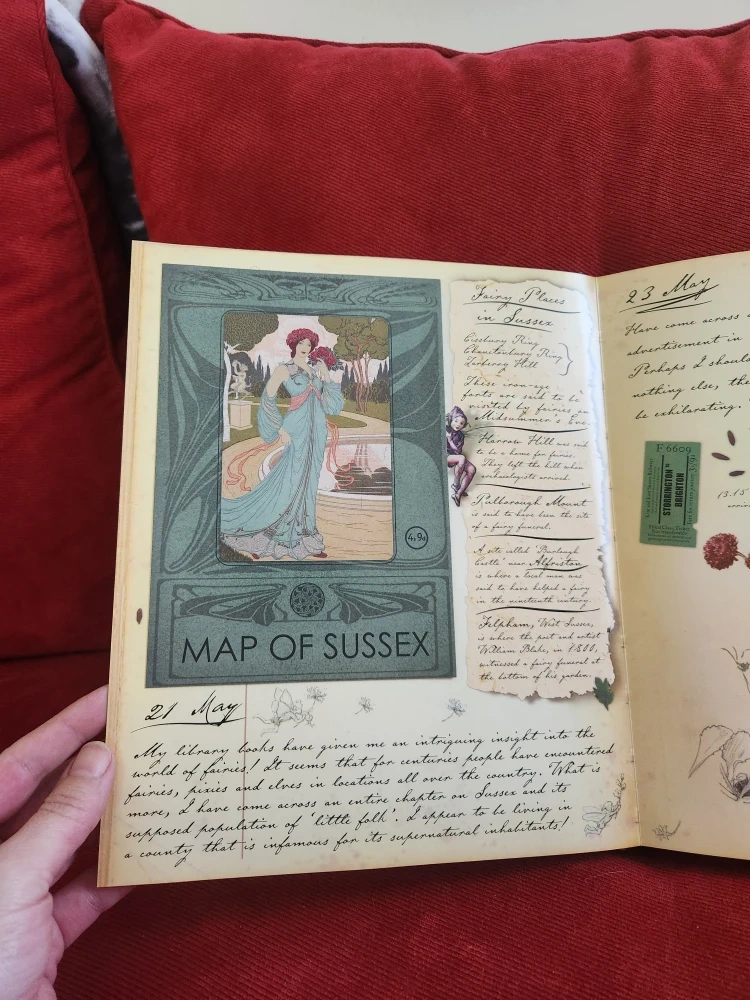 4s,9d
MAP OF SUSSEX
Fairy Places
in Sussex
Cissbury Ring
Chanctonbury Ring
Torberry Hill
These iron-age
forts are said to be
visited by fairies on
Midsummer's Eve
Harrow Hill was said
to be a home for fairies.
They left the hill when
archaeologists arrived.
Pulborough Mount
is said to have been the site
of a fairy funeral.
A site called 'Burlough
Castle' near Alfriston
is where a local man was
said to have helped a fairy
in the nineteenth century
Felpham, West Sussex,
is where the poet and artist
William Blake, in 1800,
witnessed a fairy funeral at
the bottom of his garden.
21 May
My library books have given me an intriguing insight into the
world of fairies! It seems that for centuries people have encountered
fairies, pixies and elves in locations all over the country. What is
more, I have come across an entire chapter on Sussex and its
supposed population of 'little folk'. I appear to be living in
a county that is infamous for its supernatural inhabitants!
23 May
Have come across
advertisement in
Perhaps I should
nothing else, the
be exhilarating.
F 6609
STORRINGTON
BRIGHTON
13.15